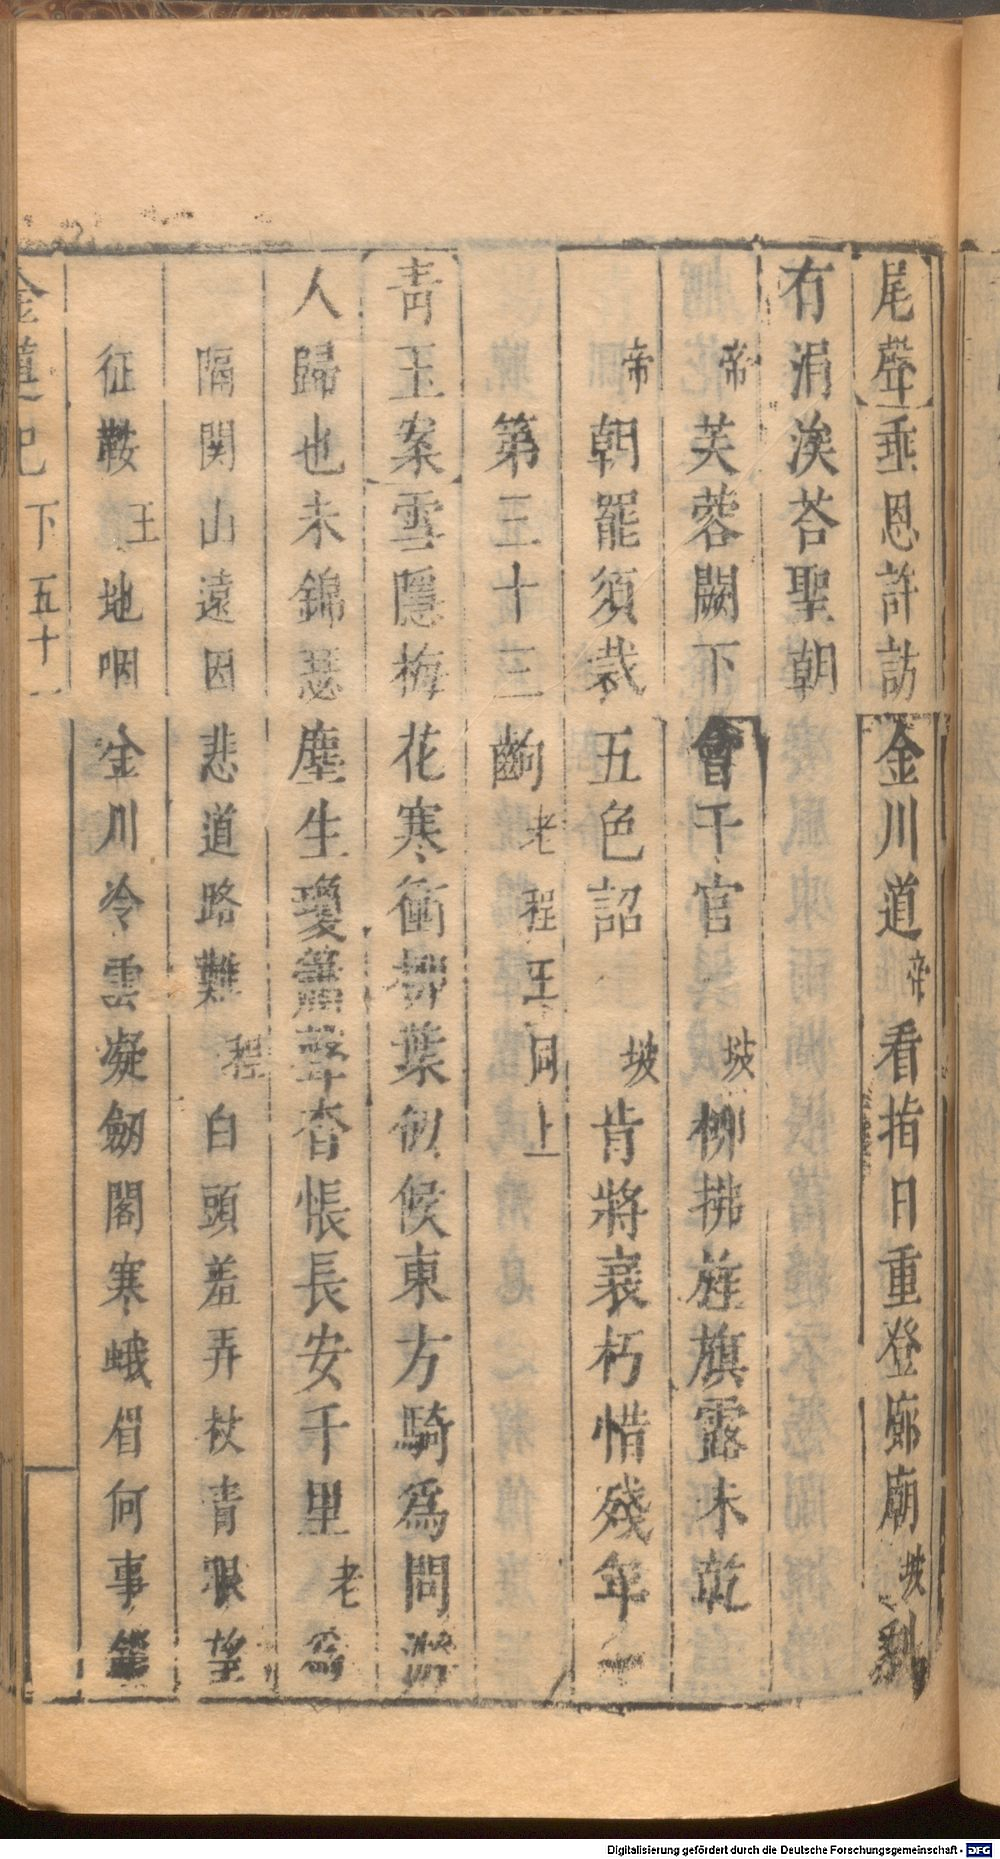 尾聲垂恩許訪金川道帝看指日重登廊廟坡
有涓涘荅聖朝
帝芙蓉闕下會千官坡柳拂旌旗露未乾
帝朝罷須裁五色詔坡肯將衰朽惜殘年
第三十三齣老程王同上
青玉案雪隱梅花寒衝柳葉似候東方騎為問
人歸也未錦瑟塵生瓊簫聲杳悵長安千里老為
隔関山遠因悲道路難程白頭羞弄杖青眼望
征鞍王地咽金川冷雲凝劒閣寒峨眉何事
金蓮記下五十一
Digitalisierung gefördert durch die Deutsche Forschungsgemeinschaft - DFG